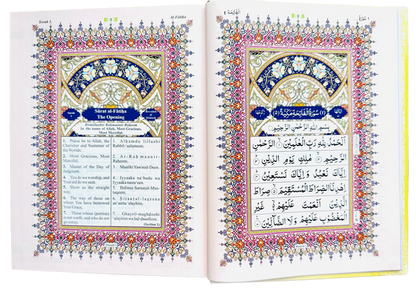 Surah 1
Al-Fatiha
Sūrat al-Fātiḥa
The Opening
In the name of Allah, Most Gracious,
Most Merciful.
1. Praise be to Allah, the
Cherisher and Sustainer of
the Worlds;
2. Most Gracious, Most
Merciful;
3. Master of the Day of
Judgment.
4. You do we worship, and
Your aid do we seek.
5. Show us the straight
way,
6. The way of those on
whom You have bestowed
Your Grace,
7. Those whose (portion)
is not wrath, and who do not
go astray.
1. Alhamdu lillaahi
Rabbil-'aalameen.
2. Ar-Rahmaanir-
Raheem.
3. Maaliki Yawmid-Deen.
4. Iyyaaka na'budu wa
Iyyaaka nasta'een.
5. Ihdinas-Siraatal-Mus-
taqeem.
6. Siraatal-lazeena
an'amta 'alayhim.
7. Ghayril-maghdoobi
'alayhim wa lad-daaalleen.
سُورَةُ الْفَاتِحَةِ مَكِّيَّةٌ
بِسْمِ اللهِ الرَّحْمٰنِ الرَّحِيْمِ
اَلْحَمْدُ لِلّٰهِ رَبِّ الْعٰلَمِيْنَ الرَّحْمٰنِ
الرَّحِيْمِ مٰلِكِ يَوْمِ الدِّيْنِ
اِيَّاكَ نَعْبُدُ وَاِيَّاكَ نَسْتَعِيْنُ
اِهْدِنَا الصِّرَاطَ الْمُسْتَقِيْمَ صِرَاطَ
الَّذِيْنَ اَنْعَمْتَ عَلَيْهِمْ غَيْرِ
الْمَغْضُوْبِ عَلَيْهِمْ وَلَا الضَّآلِّيْنَ